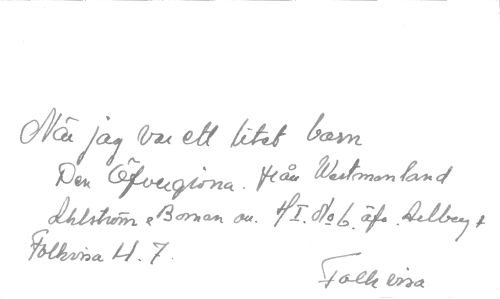 När jag var ett litet barn
Den Öfvergivna. Från Westmanland
Ahlström & Boman H I. No 6.
Folkvisa H. 7.
Folkvisa